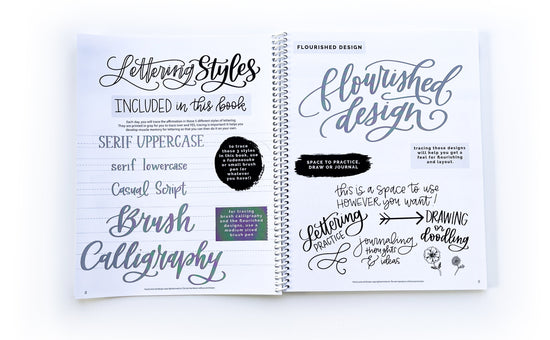 Lettering Styles
INCLUDED in this book
Each day, you will trace the affirmation in these 5 different styles of lettering.
They are printed in gray for you to trace over and YES, tracing is important! It helps you
develop muscle memory for lettering so that you can then do it on your own.
SERIF UPPERCASE
serif lowercase
Casual Script
Brush
Calligraphy
to trace
these 3 styles
in this book, use
a fudenosuke
or small brush
pen (or
whatever
you have!)
for tracing
brush calligraphy
and the flourished
designs, use a
medium sized
brush pen
FLOURISHED DESIGN
flourished
design
tracing these designs
will help you get a
feel for flourishing
and layout.
SPACE TO PRACTICE,
DRAW OR JOURNAL
this is a space to use
HOWEVER you want!
Lettering
PRACTICE
DRAWING
or
doodling
Journaling
thoughts
& ideas